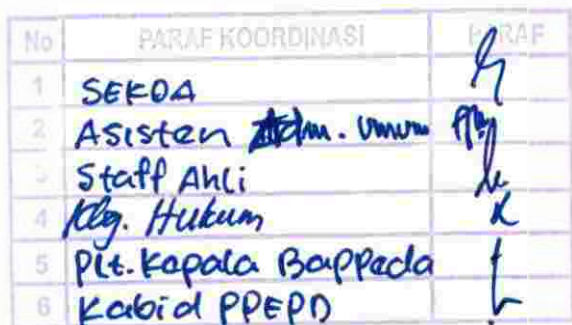 No PARAF KOORDINASI PARAF
1 SEKDA
2 Asisten Adm. Umum
3 Staff Ahli
4 Kbg. Hukum
5 Plt. Kepala Bappeda
6 Kabid PPEPD